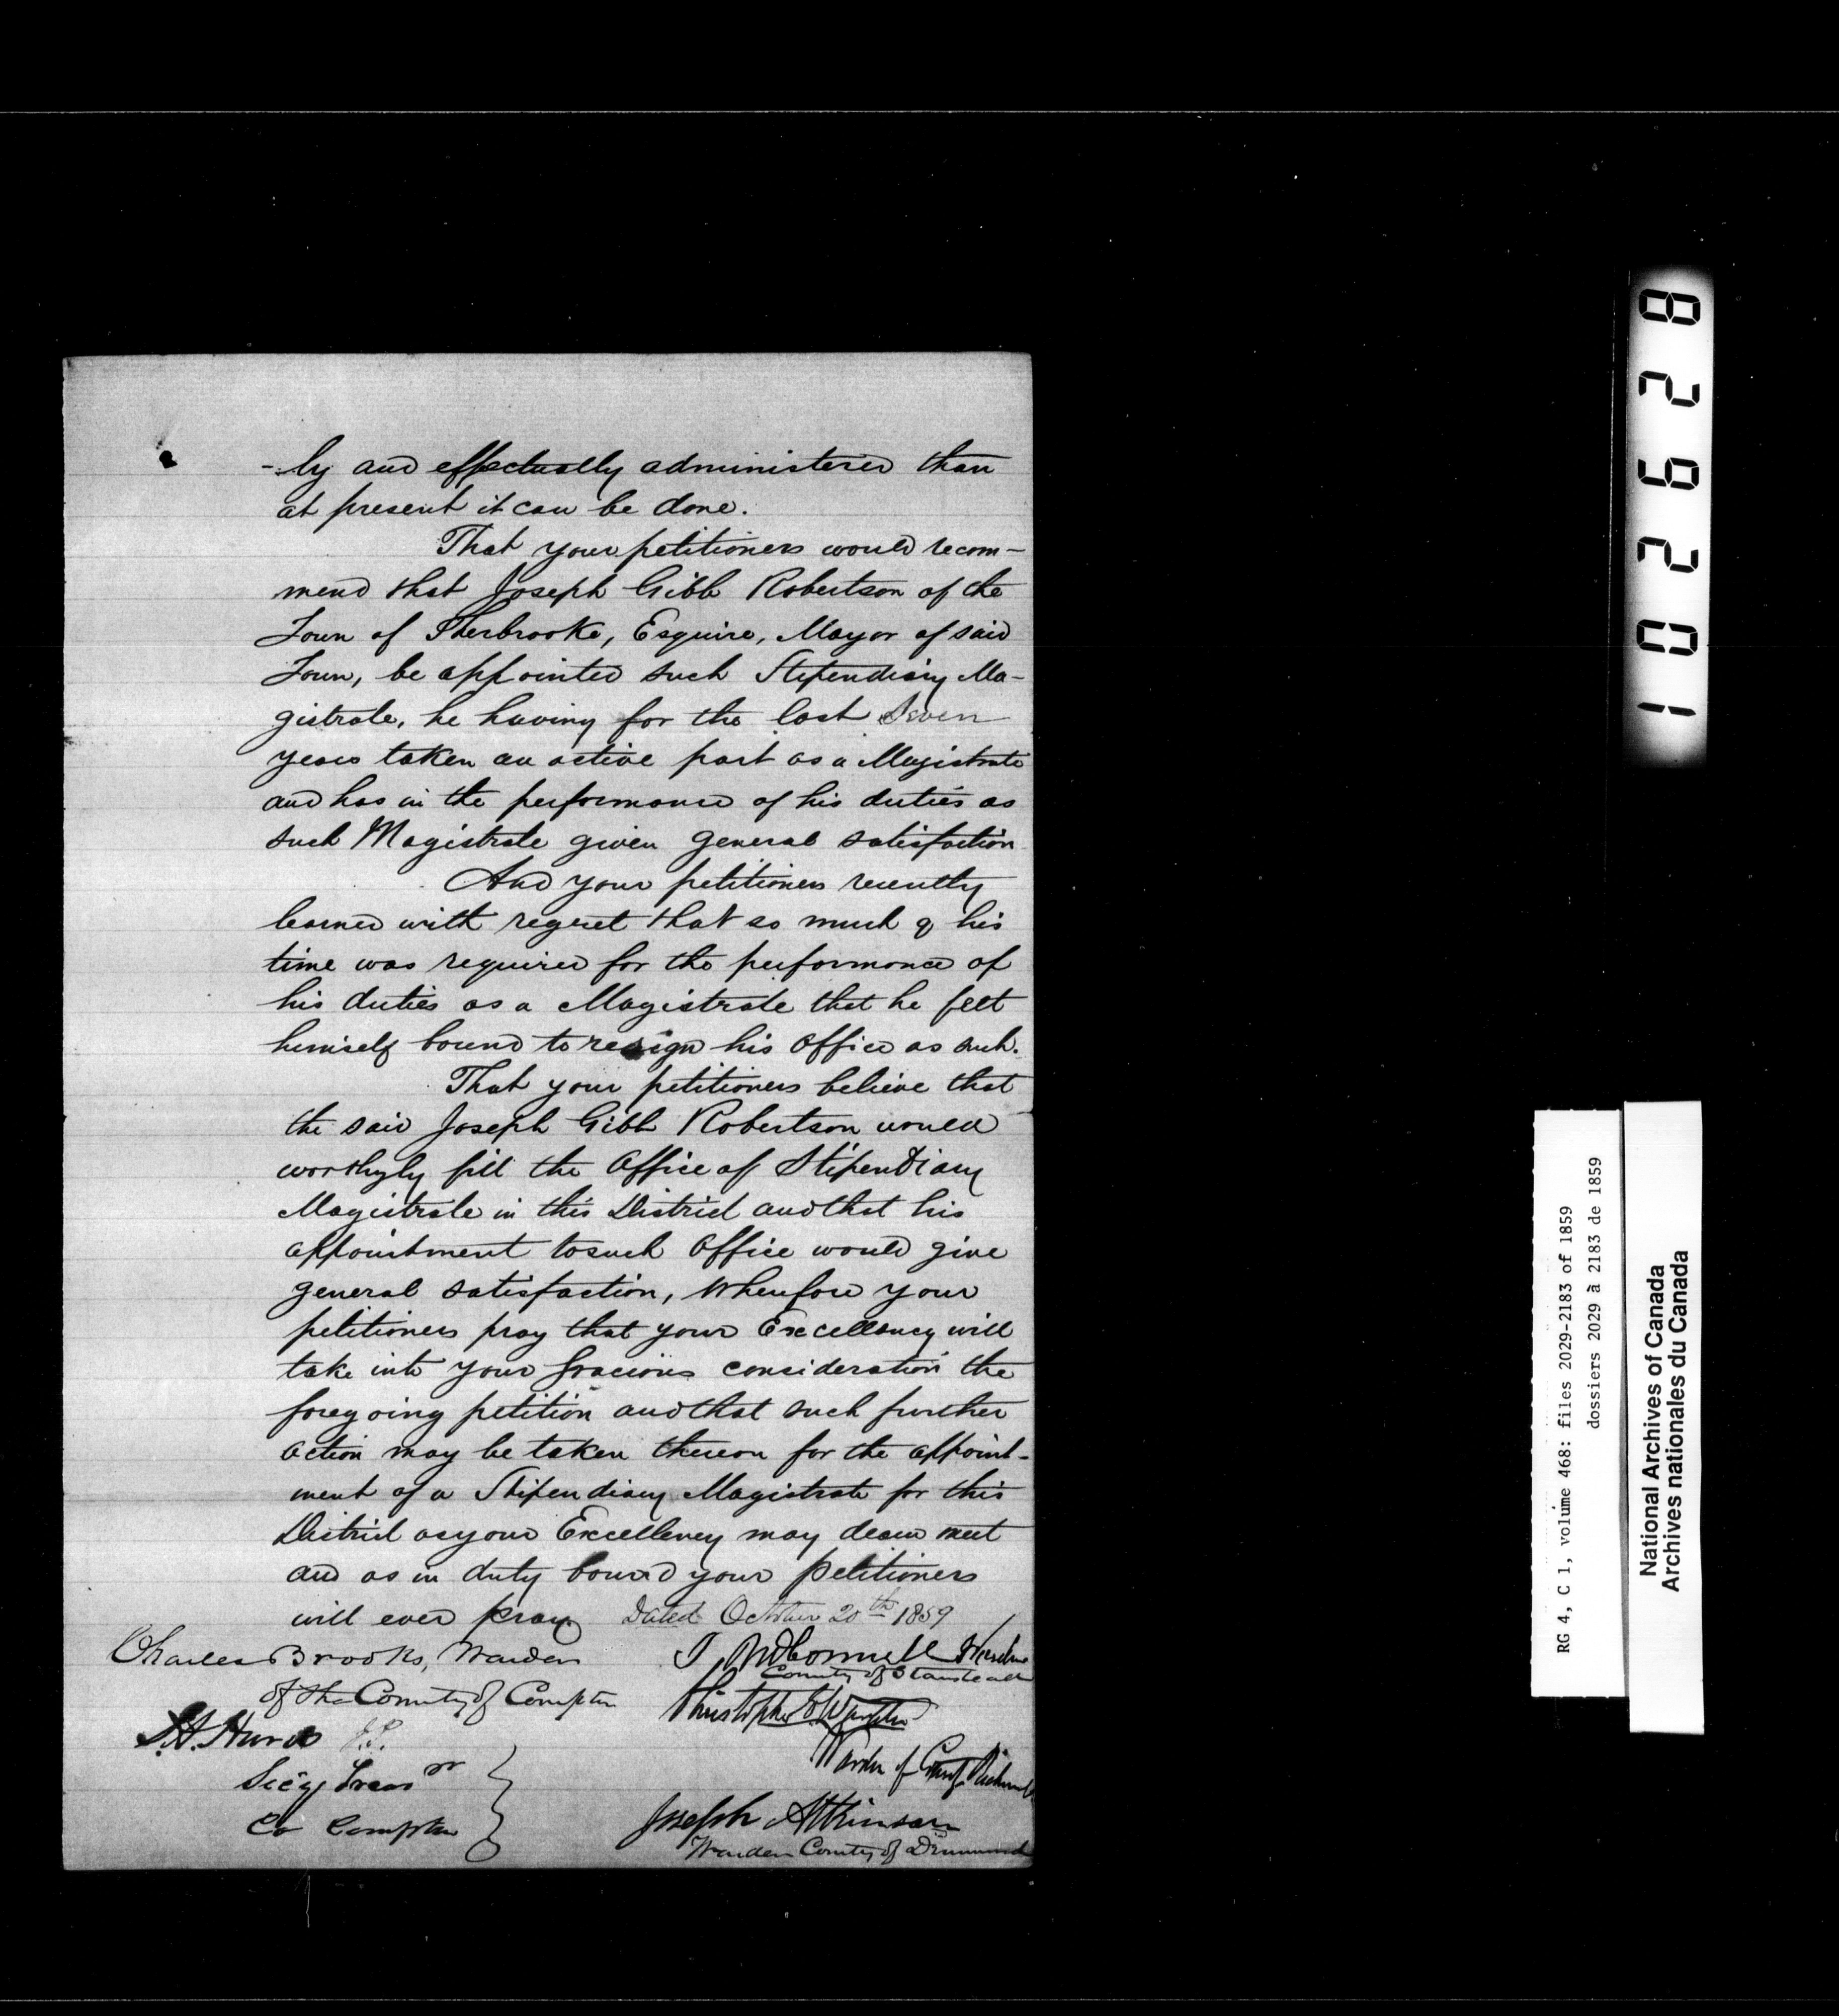 -ly and effectually administered than
at present it can be done.
That your petitioners would recom-
mend that Joseph Gibb Robertson of the
Town of Sherbrooke, Esquire, Mayor of said
Town, be appointed such Stipendiary Ma-
gistrate, he having for the last Seven
years taken an active part as a Magistrate
and has in the performance of his duties as
such Magistrate given general satisfaction
And your petitioners recently
learned with regret that so much of his
time was required for the performance of
his duties as a Magistrate that he felt
himself bound to resign his office as such.
That your petitioners believe that
the said Joseph Gibb Robertson would
worthyly fill the Office of Stipendiary
Magistrate in this District and that his
appointment to such Office would give
general satisfaction, Wherefore your
petitioners pray that your Excellency will
take into your Gracious consideration the
foregoing petition and that such further
action may be taken thereon for the appoint-
ment of a Stipendiary Magistrate for this
District as your Excellency may deem meet
and as in duty bound your petitioners
will ever pray. Dated October 20th 1859
Charles Brooks, Warden
of the County of Compton
J. McConnell Warden
County of Stanstead
Christopher
Warden of County Richmond
Hurd J.P.
Secy Treasr
Co Compton
Joseph Atkinson
Warden County of Drummond
102628
RG 4, C 1, volume 468: files 2029-2183 of 1859
dossiers 2029 à 2183 de 1859
National Archives of Canada
Archives nationales du Canada